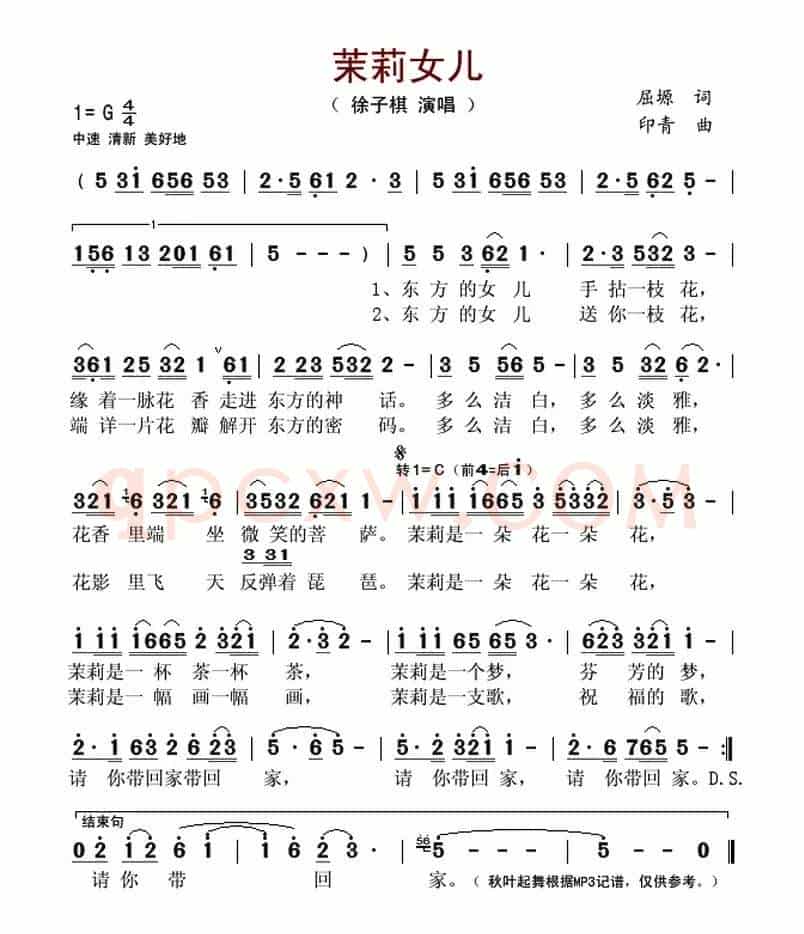 茉莉女儿
（ 徐子棋 演唱 ）
1= G 4/4
屈塬 词
中速 清新 美好地
印青 曲
( 5 31 656 53 | 2·5 61 2·3 | 5 31 656 53 | 2·5 62 5 – |
1
156 13 201 61 | 5 – – – ) | 5 5 3 62 1· | 2·3 532 3 – |
1、东 方 的女 儿 手 拈一枝 花，
2、东 方 的女 儿 送 你一枝 花，
361 25 32 1 ∨ 61 | 2 23 532 2 – | 3 5 56 5 – | 3 5 32 62· |
缘 着一脉花 香 走进 东方的神 话。 多 么 洁 白，多 么 淡 雅，
端 详一片花 瓣 解开 东方的密 码。 多 么 洁 白，多 么 淡 雅，
转1=C（前4=后1）
321 16 321 16 | 3532 621 1 – | 1 11 1665 3 5332 | 3·5 3 – |
花香 里端 坐 微 笑的菩 萨。 茉莉是一 朵 花一 朵 花，
3 31
花影 里飞 天 反弹着 琵 琶。 茉莉是一 朵 花一 朵 花，
1 11 1665 2 321 | 2·3 2 – | 1 11 65 65 3· | 623 321 1 – |
茉莉是一 杯 茶一杯 茶， 茉莉是一个梦， 芬 芳的 梦，
茉莉是一 幅 画一幅 画， 茉莉是一支歌， 祝 福的 歌，
2·1 63 2 6 23 | 5·6 5 – | 5·2 321 1 – | 2·6 765 5 – :|
请 你带回家带回 家， 请 你带回 家， 请 你带回 家。D.S.
结束句
02 12 6 1 | 1 6 23 | 56 5 – – – | 5 – – 0 ||
请你 带 回 家。（ 秋叶起舞根据MP3记谱，仅供参考。）
gpcxw.com